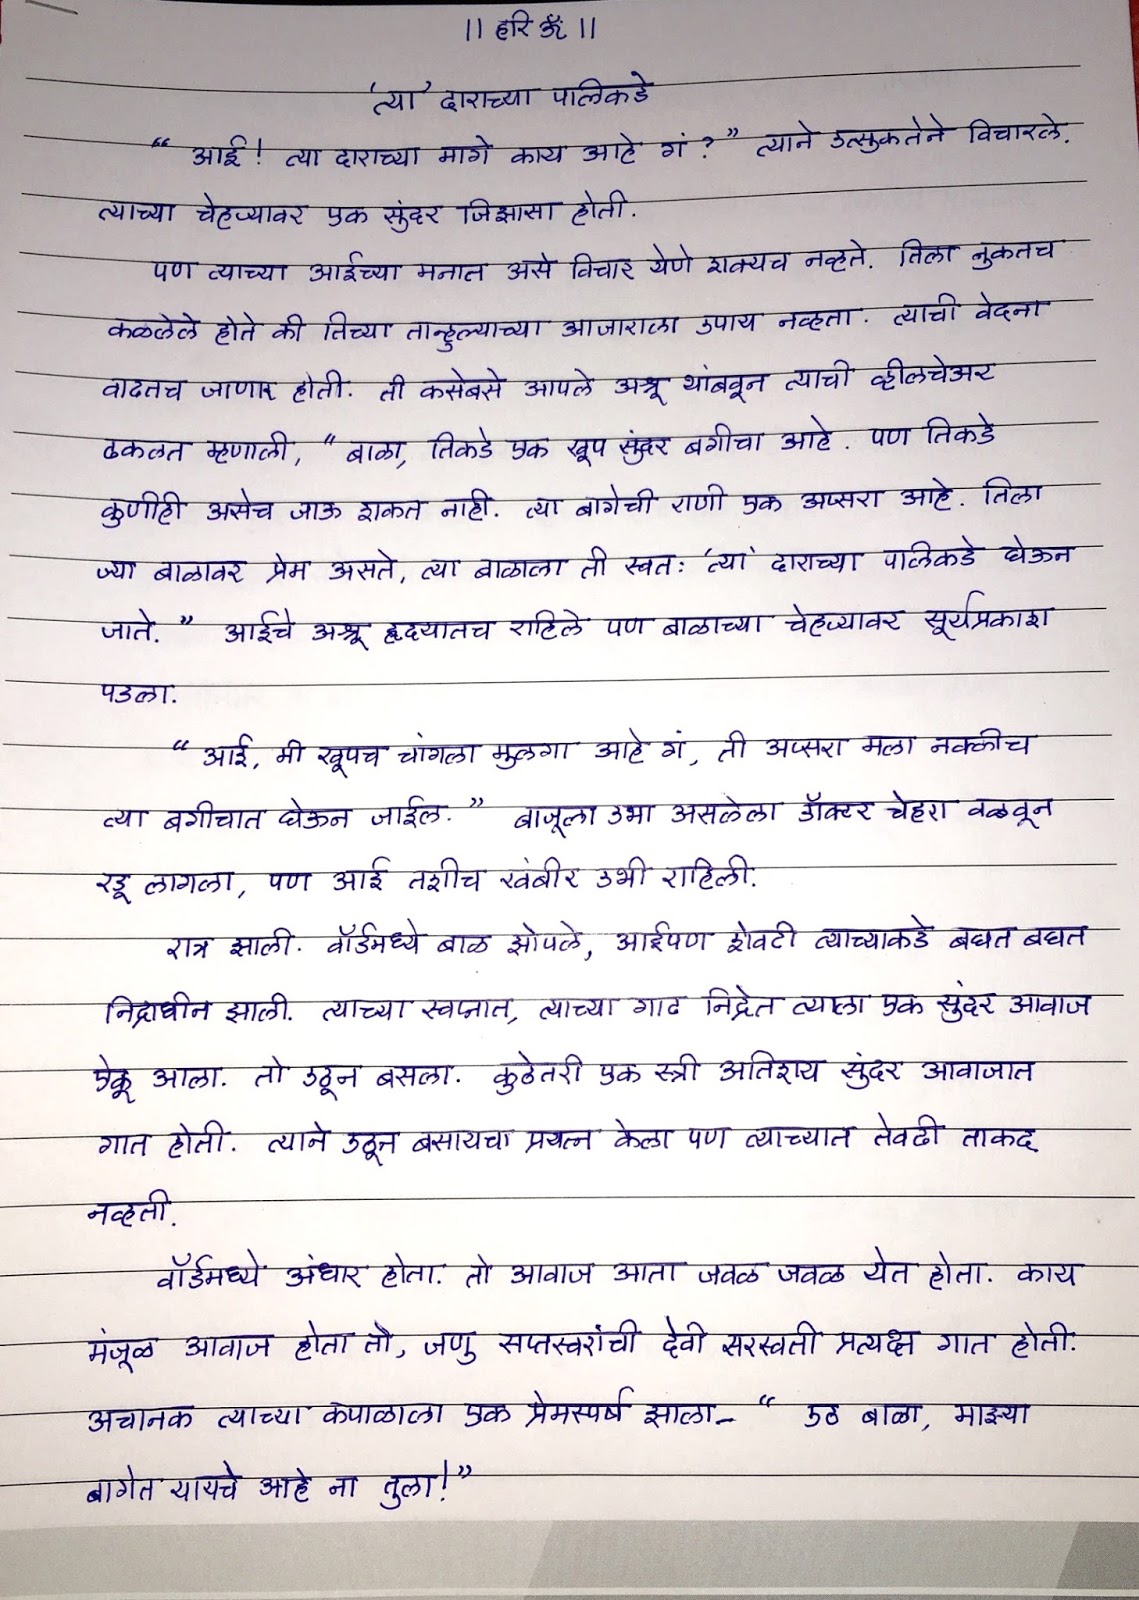 || हरि ॐ ||
'त्या' दाराच्या पलिकडे
" आई! त्या दाराच्या मागे काय आहे गं ? " त्याने उत्सुकतेने विचारले.
त्याच्या चेहऱ्यावर एक सुंदर जिज्ञासा होती.
पण त्याच्या आईच्या मनात असे विचार येणे शक्यच नव्हते. तिला नुकतच
कळलेले होते की तिच्या तान्हुल्याच्या आजाराला उपाय नव्हता. त्याची वेदना
वाढतच जाणार होती. ती कसेबसे आपले अश्रू थांबवून त्याची व्हीलचेअर
ढकलत म्हणाली, " बाळा, तिकडे एक खूप सुंदर बगीचा आहे. पण तिकडे
कुणीही असेच जाऊ शकत नाही. त्या बागेची राणी एक अप्सरा आहे. तिला
ज्या बाळावर प्रेम असते, त्या बाळाला ती स्वतः 'त्या' दाराच्या पलिकडे घेऊन
जाते. " आईचे अश्रू हृदयातच राहिले पण बाळाच्या चेहऱ्यावर सूर्यप्रकाश
पडला.
" आई, मी खूपच चांगला मुलगा आहे गं, ती अप्सरा मला नक्कीच
त्या बगीचात घेऊन जाईल. " बाजूला उभा असलेला डॉक्टर चेहरा वळवून
रडू लागला, पण आई तशीच खंबीर उभी राहिली.
रात्र झाली. वॉर्डमध्ये बाळ झोपले, आईपण शेवटी त्याच्याकडे बघत बघत
निद्राधीन झाली. त्याच्या स्वप्नात, त्याच्या गाढ निद्रेत त्याला एक सुंदर आवाज
ऐकू आला. तो उठून बसला. कुठेतरी एक स्त्री अतिशय सुंदर आवाजात
गात होती. त्याने उठून बसायचा प्रयत्न केला पण त्याच्यात तेवढी ताकद
नव्हती.
वॉर्डमध्ये अंधार होता. तो आवाज आता जवळ जवळ येत होता. काय
मंजूळ आवाज होता तो, जणु सप्तस्वरांची देवी सरस्वती प्रत्यक्ष गात होती.
अचानक त्याच्या कपाळाला एक प्रेमस्पर्ष झाला- " उठ बाळा, माझ्या
बागेत यायचे आहे ना तुला!"